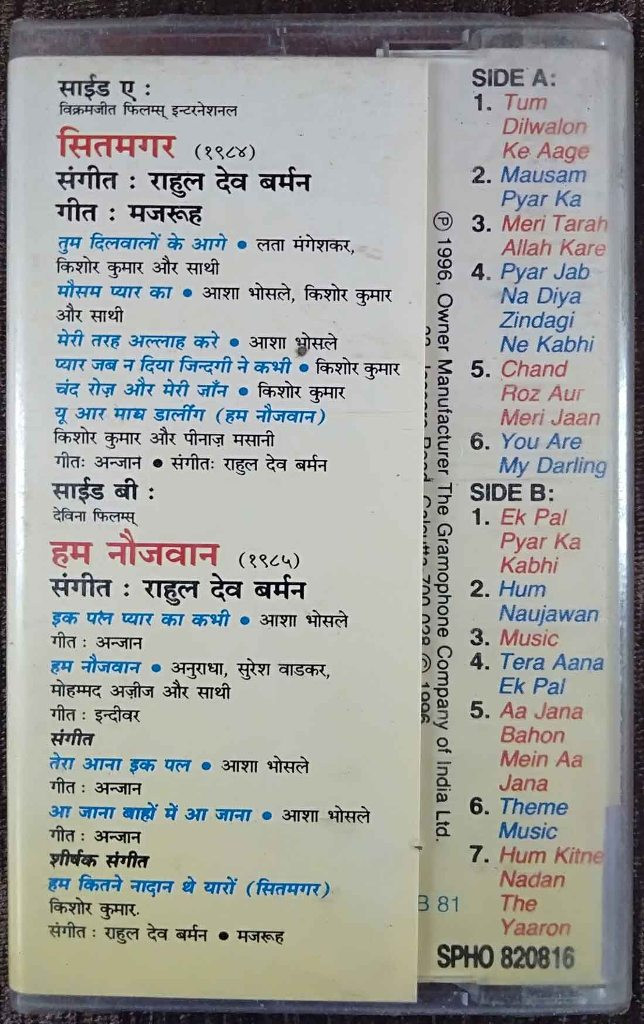 साईड ए :
विक्रमजीत फिलम्स् इन्टरनेशनल
सितमगर (१९८४)
संगीत : राहुल देव बर्मन
गीत : मजरूह
तुम दिलवालों के आगे • लता मंगेशकर,
किशोर कुमार और साथी
मौसम प्यार का • आशा भोसले, किशोर कुमार
और साथी
मेरी तरह अल्लाह करे • आशा भोसले
प्यार जब न दिया जिन्दगी ने कभी • किशोर कुमार
चंद रोज़ और मेरी जाँन • किशोर कुमार
यू आर माय डार्लींग (हम नौजवान)
किशोर कुमार और पीनाज़ मसानी
गीतः अन्जान • संगीतः राहुल देव बर्मन
साईड बी :
देविना फिलम्स्
हम नौजवान (१९८५)
संगीत : राहुल देव बर्मन
इक पल प्यार का कभी • आशा भोसले
गीत : अन्जान
हम नौजवान • अनुराधा, सुरेश वाडकर,
मोहम्मद अज़ीज और साथी
गीत : इन्दीवर
संगीत
तेरा आना इक पल • आशा भोसले
गीत : अन्जान
आ जाना बाहों में आ जाना • आशा भोसले
गीत : अन्जान
शीर्षक संगीत
हम कितने नादान थे यारों (सितमगर)
किशोर कुमार.
संगीत : राहुल देव बर्मन • मजरूह
Ⓟ 1996, Owner Manufacturer The Gramophone Company of India Ltd.
Road, Calcutta 700 028 © 1996
B 81
SIDE A:
1. Tum
Dilwalon
Ke Aage
2. Mausam
Pyar Ka
3. Meri Tarah
Allah Kare
4. Pyar Jab
Na Diya
Zindagi
Ne Kabhi
5. Chand
Roz Aur
Meri Jaan
6. You Are
My Darling
SIDE B:
1. Ek Pal
Pyar Ka
Kabhi
2. Hum
Naujawan
3. Music
4. Tera Aana
Ek Pal
5. Aa Jana
Bahon
Mein Aa
Jana
6. Theme
Music
7. Hum Kitne
Nadan
The
Yaaron
SPHO 820816